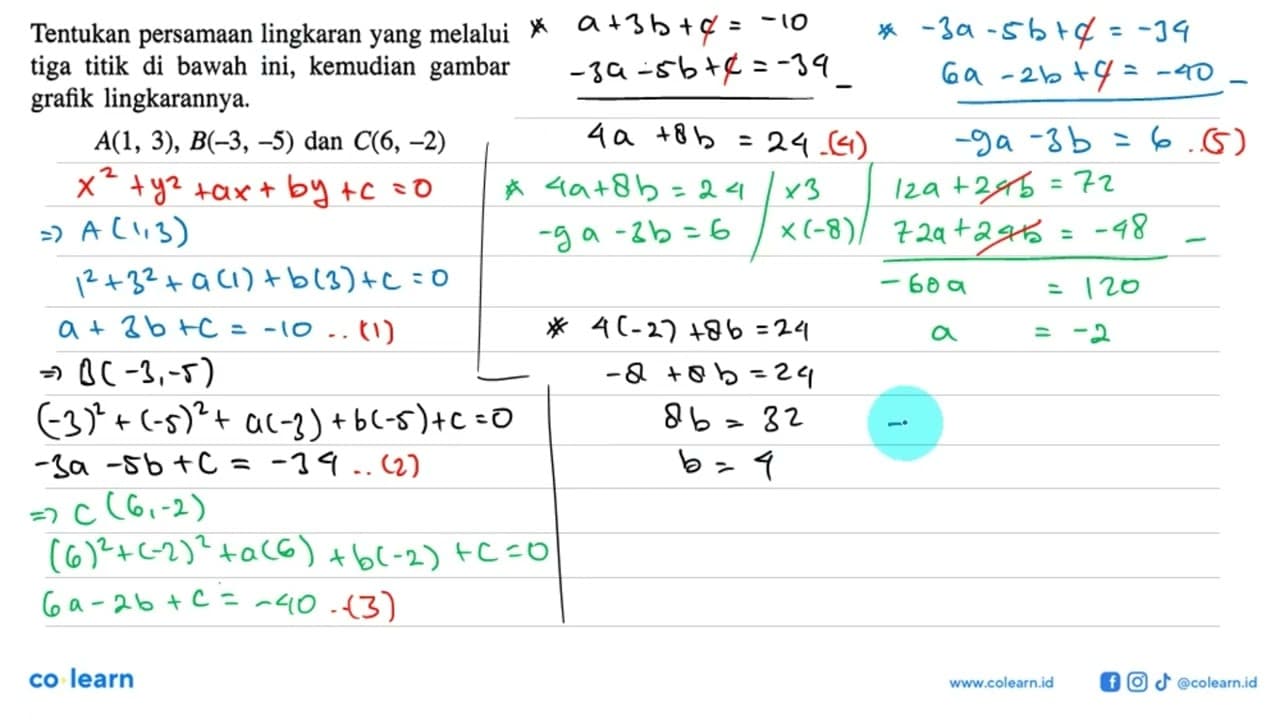 Tentukan persamaan lingkaran yang melalui
tiga titik di bawah ini, kemudian gambar
grafik lingkarannya.
A(1, 3), B(–3, –5) dan C(6, –2)
x² + y² + ax + by + c = 0
=> A (1,3)
1² + 3² + a(1) + b(3) + c = 0
a + 3b + c = -10 .. (1)
=> B(-3,-5)
(-3)² + (-5)² + a(-3) + b(-5) + c = 0
-3a - 5b + c = -34 .. (2)
=> C (6,-2)
(6)² + (-2)² + a(6) + b(-2) + c = 0
6a - 2b + c = -40 .. (3)
* a + 3b + c = -10
-3a - 5b + c = -34 -
4a + 8b = 24 ..(4)
* -3a - 5b + c = -34
6a - 2b + c = -40 -
-9a - 3b = 6 ..(5)
* 4a + 8b = 24 / x3 / 12a + 24b = 72
-9a - 3b = 6 / x(-8) / 72a + 24b = -48 -
-60a = 120
a = -2
* 4(-2) + 8b = 24
-8 + 8b = 24
8b = 32
b = 4
co learn
www.colearn.id
@colearn.id